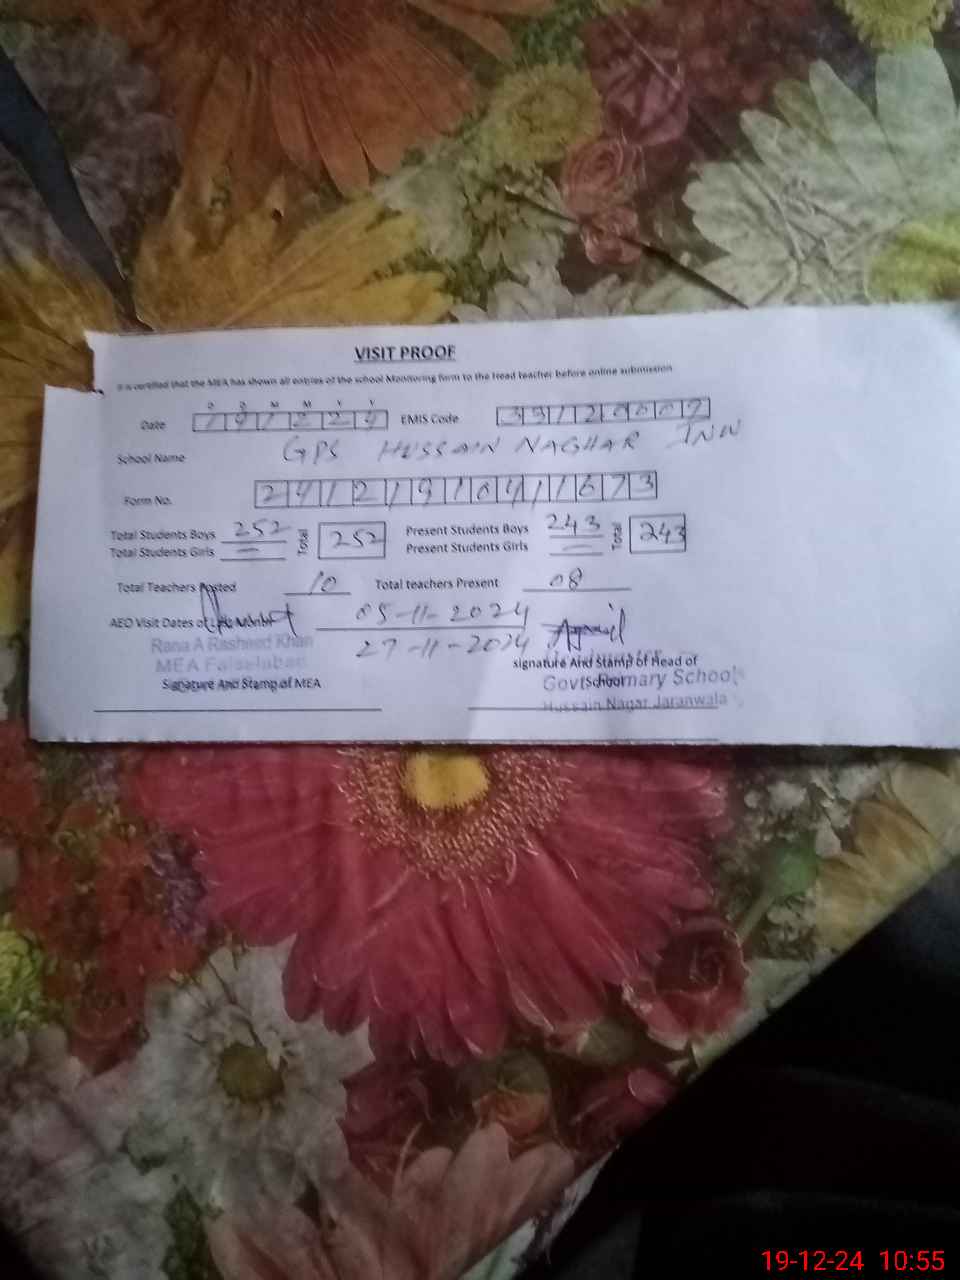 VISIT PROOF
It is certified that the MEA has shown all entries of the school Monitoring form to the Head teacher before online submission
D D M M Y Y
Date 191224 EMIS Code
School Name GPS HUSSAIN NAGHAR JNW
Form No.
Total Students Boys 252 Total 252 Present Students Boys 243 Total 243
Total Students Girls — Present Students Girls —
Total Teachers Posted 10 Total teachers Present 08
AEO Visit Dates of Last Month 05-11-2024
27-11-2024
Rana A Rasheed Khan
MEA Faisalabad
Signature And Stamp of MEA
signature And Stamp of Head of
School
Govt. Primary School
Hussain Nagar Jaranwala
19-12-24 10:55